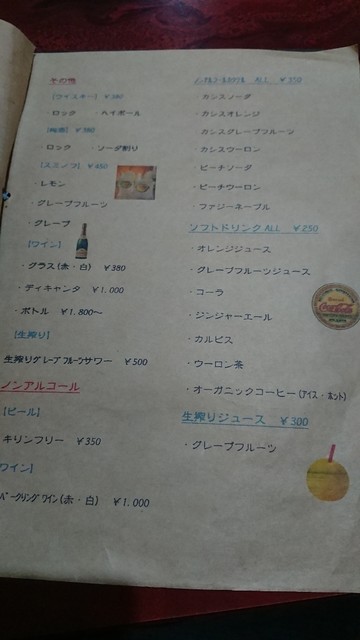 その他
【ウイスキー】 ¥380
・ロック ・ハイボール
【梅酒】 ¥380
・ロック ・ソーダ割り
【スミノフ】 ¥450
・レモン
・グレープフルーツ
・グレープ
【ワイン】
・グラス(赤・白) ¥380
・ディキャンタ ¥1.000
・ボトル ¥1.800～
【生搾り】
生搾りグレープフルーツサワー ¥500
ノンアルコール
【ビール】
キリンフリー ¥350
ワイン】
パークリングワイン(赤・白) ¥1.000
ノンアルコールカクテル ALL ¥350
・カシスソーダ
・カシスオレンジ
・カシスグレープフルーツ
・カシスウーロン
・ピーチソーダ
・ピーチウーロン
・ファジーネーブル
ソフトドリンクALL ¥250
・オレンジジュース
・グレープフルーツジュース
・コーラ
・ジンジャーエール
・カルピス
・ウーロン茶
・オーガニックコーヒー(アイス・ホット)
生搾りジュース ¥300
・グレープフルーツ
Coca-Cola